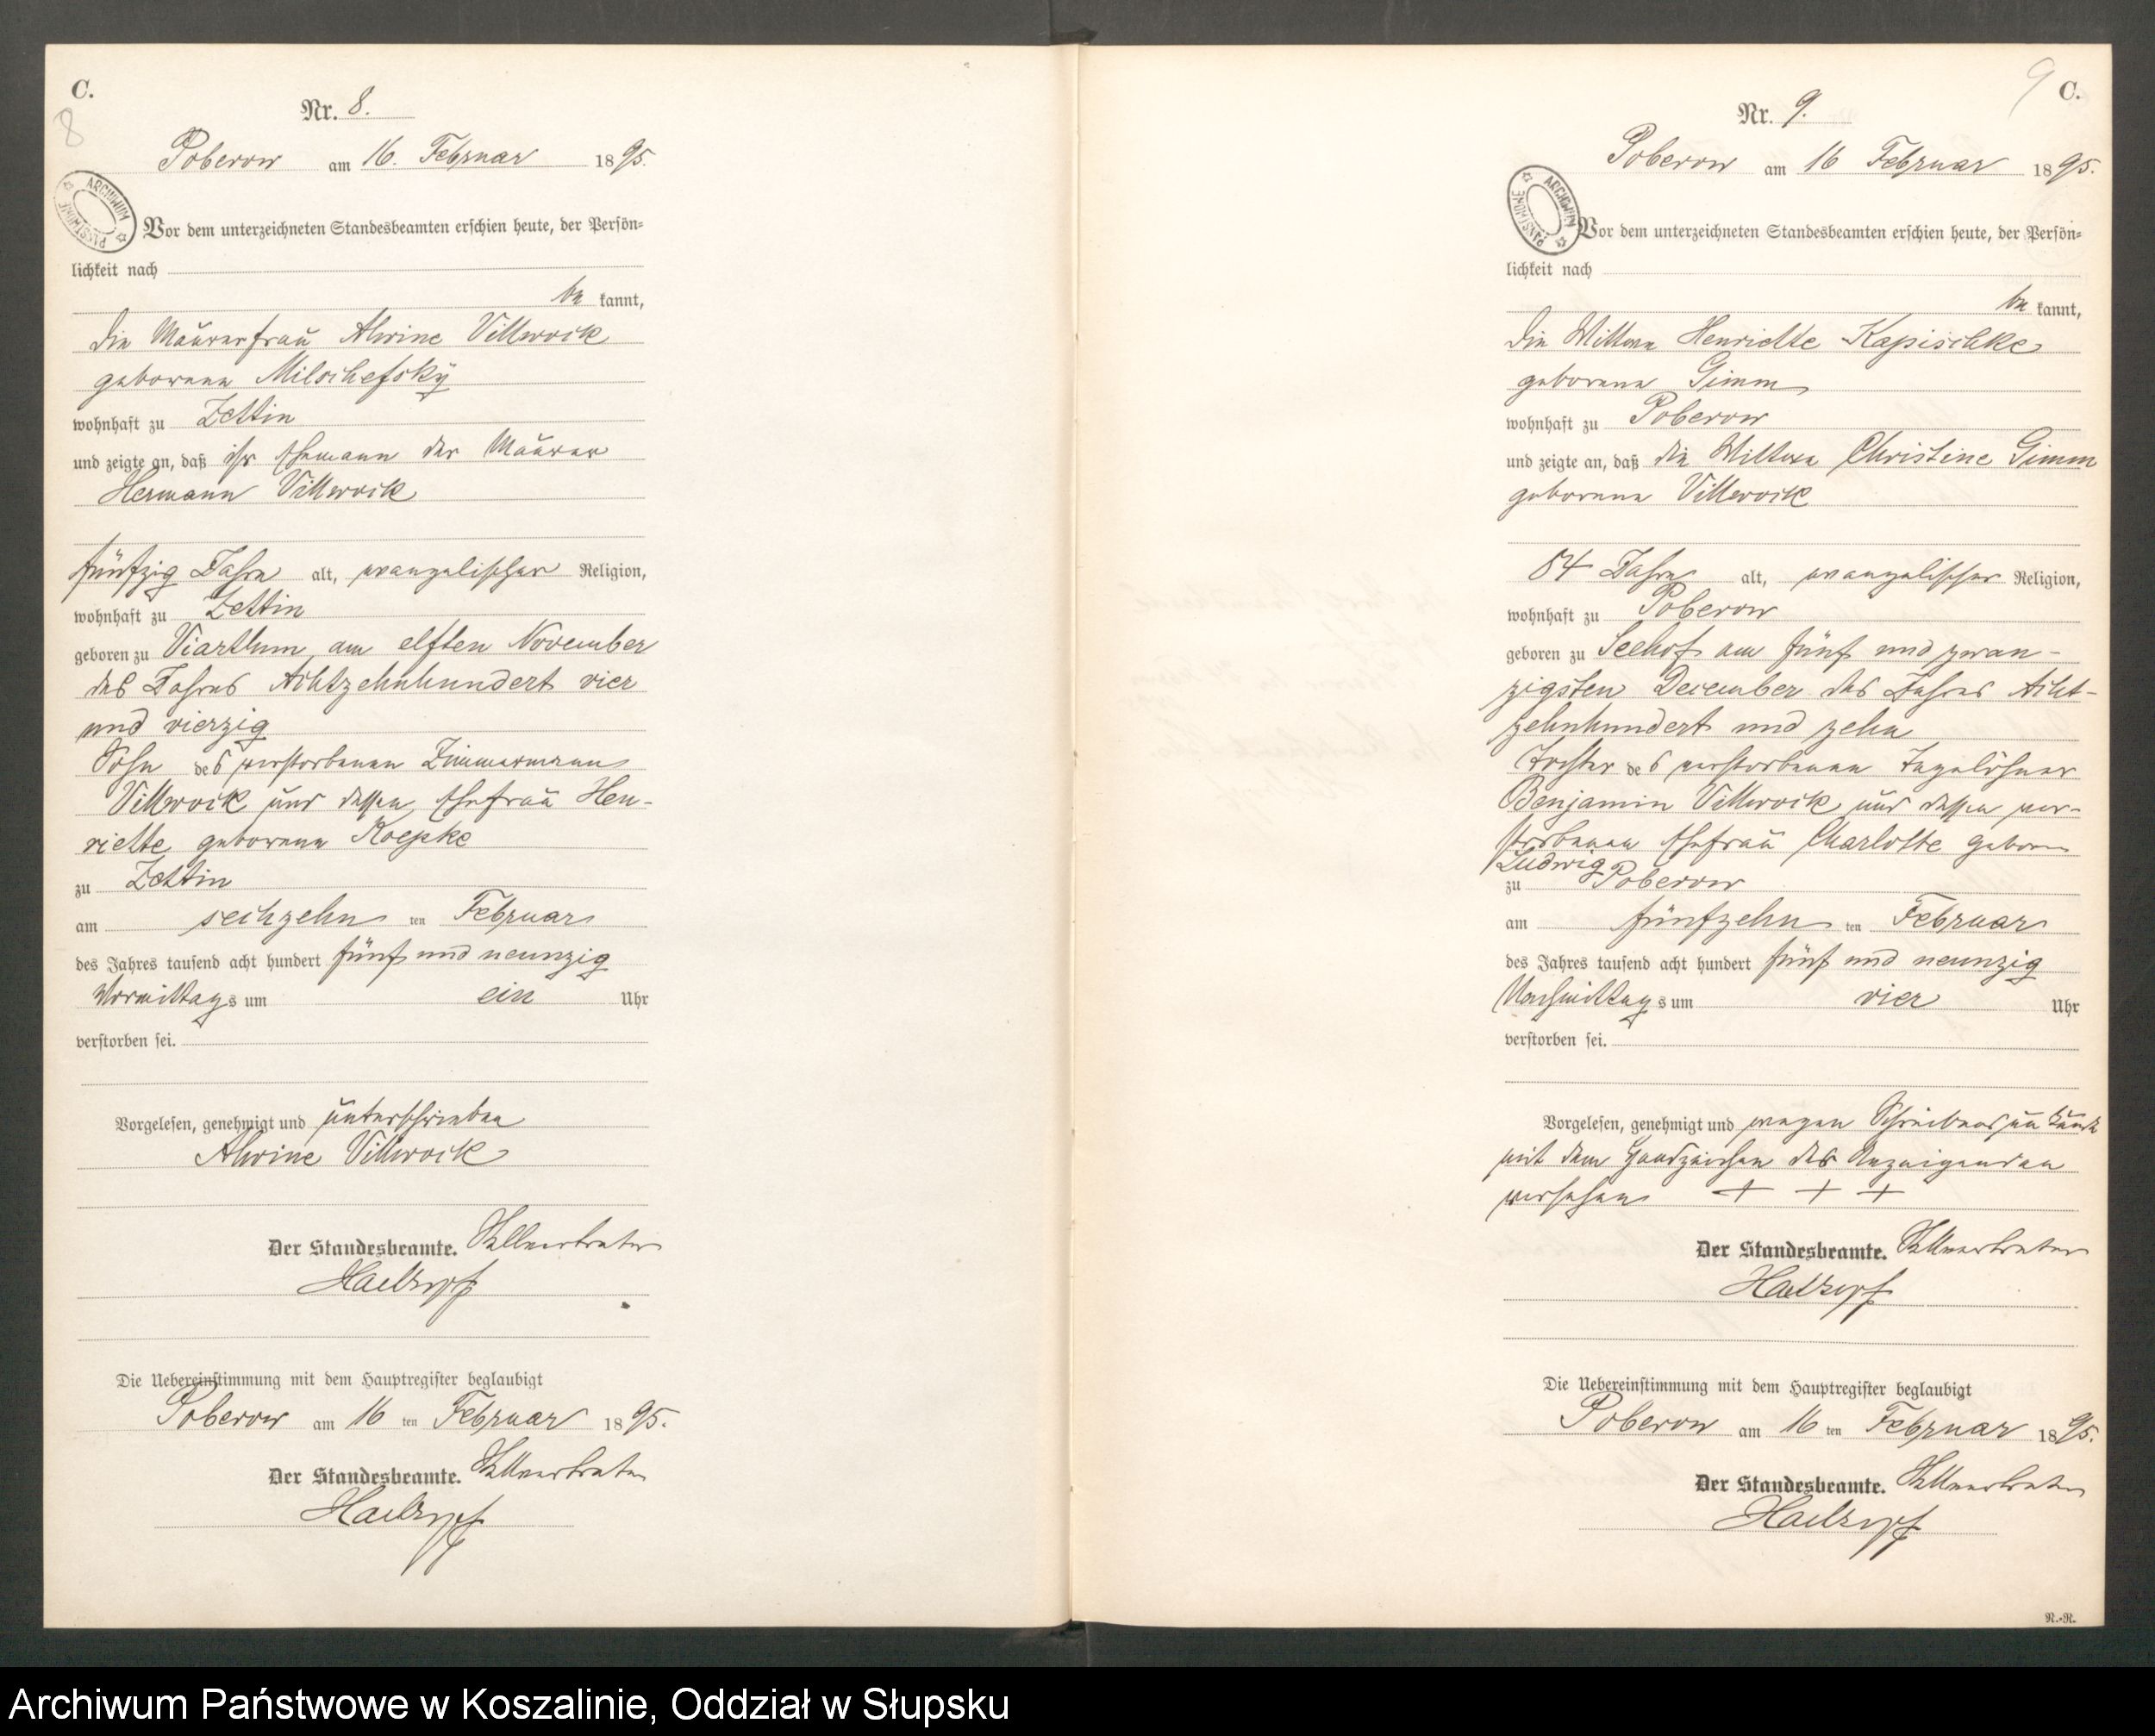 C.
8
Nr. 8.
Poberow am 16. Februar 1895.
ARCHIWUM PAŃSTWOWE
Vor dem unterzeichneten Standesbeamten erschien heute, der Persön=
lichkeit nach
be kannt,
die Maurerfrau Alwine Villwock
geborene Milschefsky
wohnhaft zu Zettin
und zeigte an, daß ihr Ehemann der Maurer
Hermann Villwock
fünfzig Jahre alt, evangelischer Religion,
wohnhaft zu Zettin
geboren zu Viartlum, am elften November
des Jahres Achtzehnhundert vier
und vierzig
Sohn des verstorbenen Zimmermann
Villwock und dessen Ehefrau Hen-
riette geborene Koepke
zu Zettin
am sechzehn ten Februar
des Jahres tausend acht hundert fünf und neunzig
Vormittags um ein Uhr
verstorben sei.
Vorgelesen, genehmigt und unterschrieben
Alwine Villwock
Der Standesbeamte. Stellvertreter
Die Uebereinstimmung mit dem Hauptregister beglaubigt
Poberow am 16 ten Februar 1895.
Der Standesbeamte. Stellvertreter
9 C.
Nr. 9.
Poberow am 16 Februar 1895.
ARCHIWUM PAŃSTWOWE
Vor dem unterzeichneten Standesbeamten erschien heute, der Persön=
lichkeit nach
be kannt,
die Wittwe Henriette Kapischke
geborene Gimm
wohnhaft zu Poberow
und zeigte an, daß die Wittwe Christine Gimm
geborene Villwock
84 Jahre alt, evangelischer Religion,
wohnhaft zu Poberow
geboren zu Seehof am fünf und zwan-
zigsten December des Jahres Acht-
zehnhundert und zehn
Tochter des verstorbenen Tagelöhner
Benjamin Villwock und dessen ver-
storbenen Ehefrau Charlotte geborene
Ludwig
zu Poberow
am fünfzehn ten Februar
des Jahres tausend acht hundert fünf und neunzig
Nachmittags um vier Uhr
verstorben sei.
Vorgelesen, genehmigt und wegen Schreibensunkunde
mit dem Handzeichen des Anzeigenden
versehen + + +
Der Standesbeamte. Stellvertreter
Die Uebereinstimmung mit dem Hauptregister beglaubigt
Poberow am 16 ten Februar 1895.
Der Standesbeamte. Stellvertreter
N.-R.
Archiwum Państwowe w Koszalinie, Oddział w Słupsku